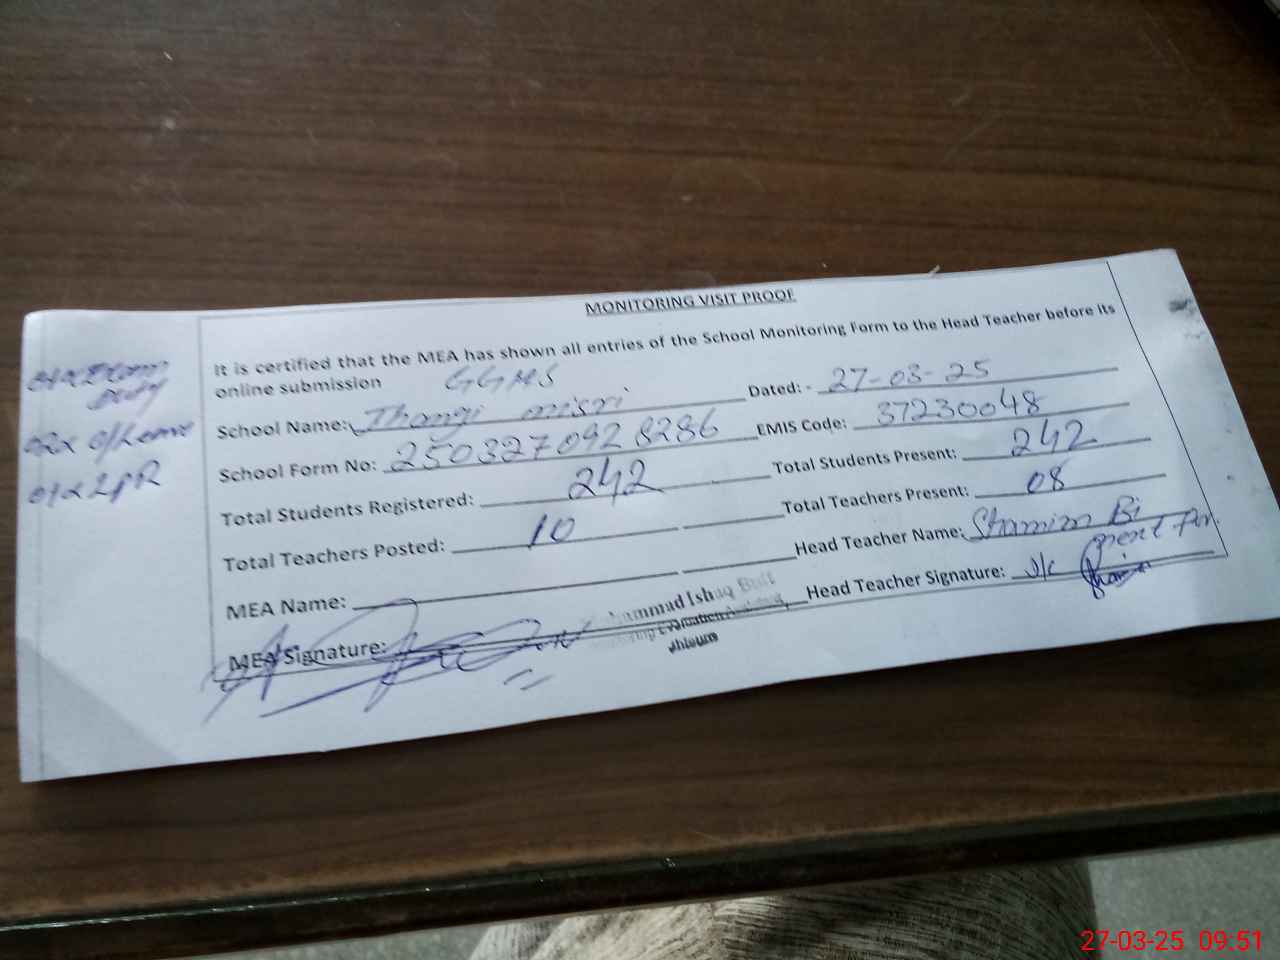 MONITORING VISIT PROOF
It is certified that the MEA has shown all entries of the School Monitoring Form to the Head Teacher before its
online submission GGMS
School Name: Thangi misri Dated: - 27-03-25
School Form No: 2503270928286 EMIS Code: 37230048
Total Students Registered: 242 Total Students Present: 242
Total Teachers Posted: 10 Total Teachers Present: 08
MEA Name: Head Teacher Name: Shamim Bi
MEA Signature: Muhammad Ishaq Butt Head Teacher Signature:
Monitoring Evaluation Assistant,
Jhleum
27-03-25 09:51